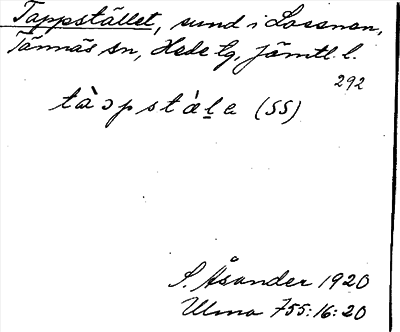 Tappstället, sund i Lossnen,
Tännäs sn, Hede tg, Jämtl. l.
292
tàɔpstàl̲e (SS)
S. Åsander 1920
Ulma 755:16:20